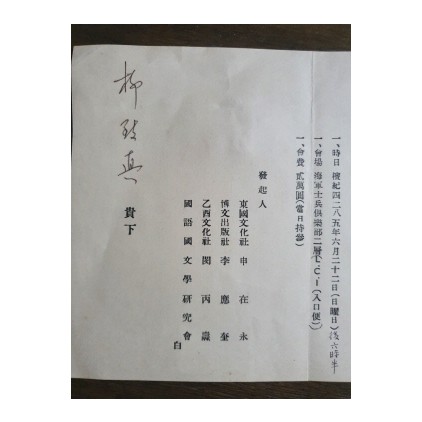 一、時日 檀紀四二八五年六月二十二日(日曜日)後六時半
一、會場 海軍士兵俱樂部二層L.C.I(入口便)
一、會費 貳萬圓(當日持參)
發起人
東國文化社 申 在 永
博文出版社 李 應 奎
乙酉文化社 閔 丙 燾
國語國文學研究會 白
柳致真 貴下